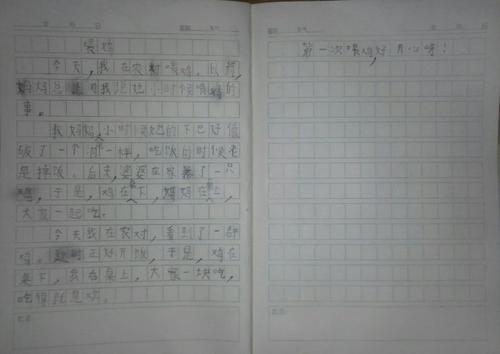 喂鸡
今天,我在农村喂鸡。以前,
妈妈总是对我说她小时候喂鸡的
事。
我妈妈小时候她的下巴好像
破了一个洞一样,吃饭的时候老
是掉饭。后来,婆婆在家养了一只
鸡,于是,鸡在下,妈妈在上,
大家一起吃。
今天我在农村,看到了一群
鸡。正好开饭,于是,鸡在
桌下,我在桌上,大家一块吃,
吃得
第一次喂鸡好开心呀!